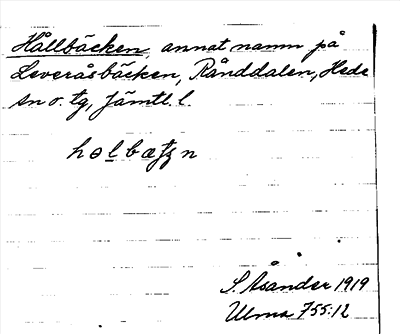 Hållbäcken, annat namn på
Leveråsbäcken, Rånddalen, Hede
sn o. tg, Jämtl. l.
S. Åsander 1919
Ulma 755:12